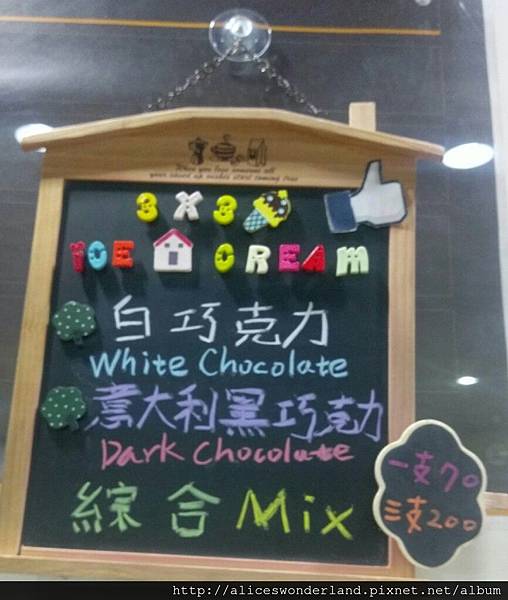 When you lose someone all
3 X 3
ICE CREAM
白巧克力
White Chocolate
意大利黑巧克力
Dark Chocolate
綜合 Mix
一支70
三支200
http://aliceswonderland.pixnet.net/album